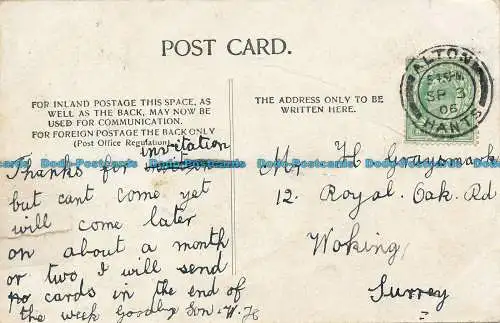 POST CARD.
FOR INLAND POSTAGE THIS SPACE, AS
WELL AS THE BACK, MAY NOW BE
USED FOR COMMUNICATION.
FOR FOREIGN POSTAGE THE BACK ONLY
(Post Office Regulation).
THE ADDRESS ONLY TO BE
WRITTEN HERE.
ALTON
SP 3
06
HANTS
invitation
Thanks for
but cant come yet
will come later
on about a month
or two I will send
no cards in the end of
the week Goodbye Son. W. H
Mr H Graysmark
12. Royal. Oak. Rd
Woking
Surrey
Dodo-Postcards Dodo-Postcards Dodo-Postcards Dodo-Postcards Dodo-Postcards